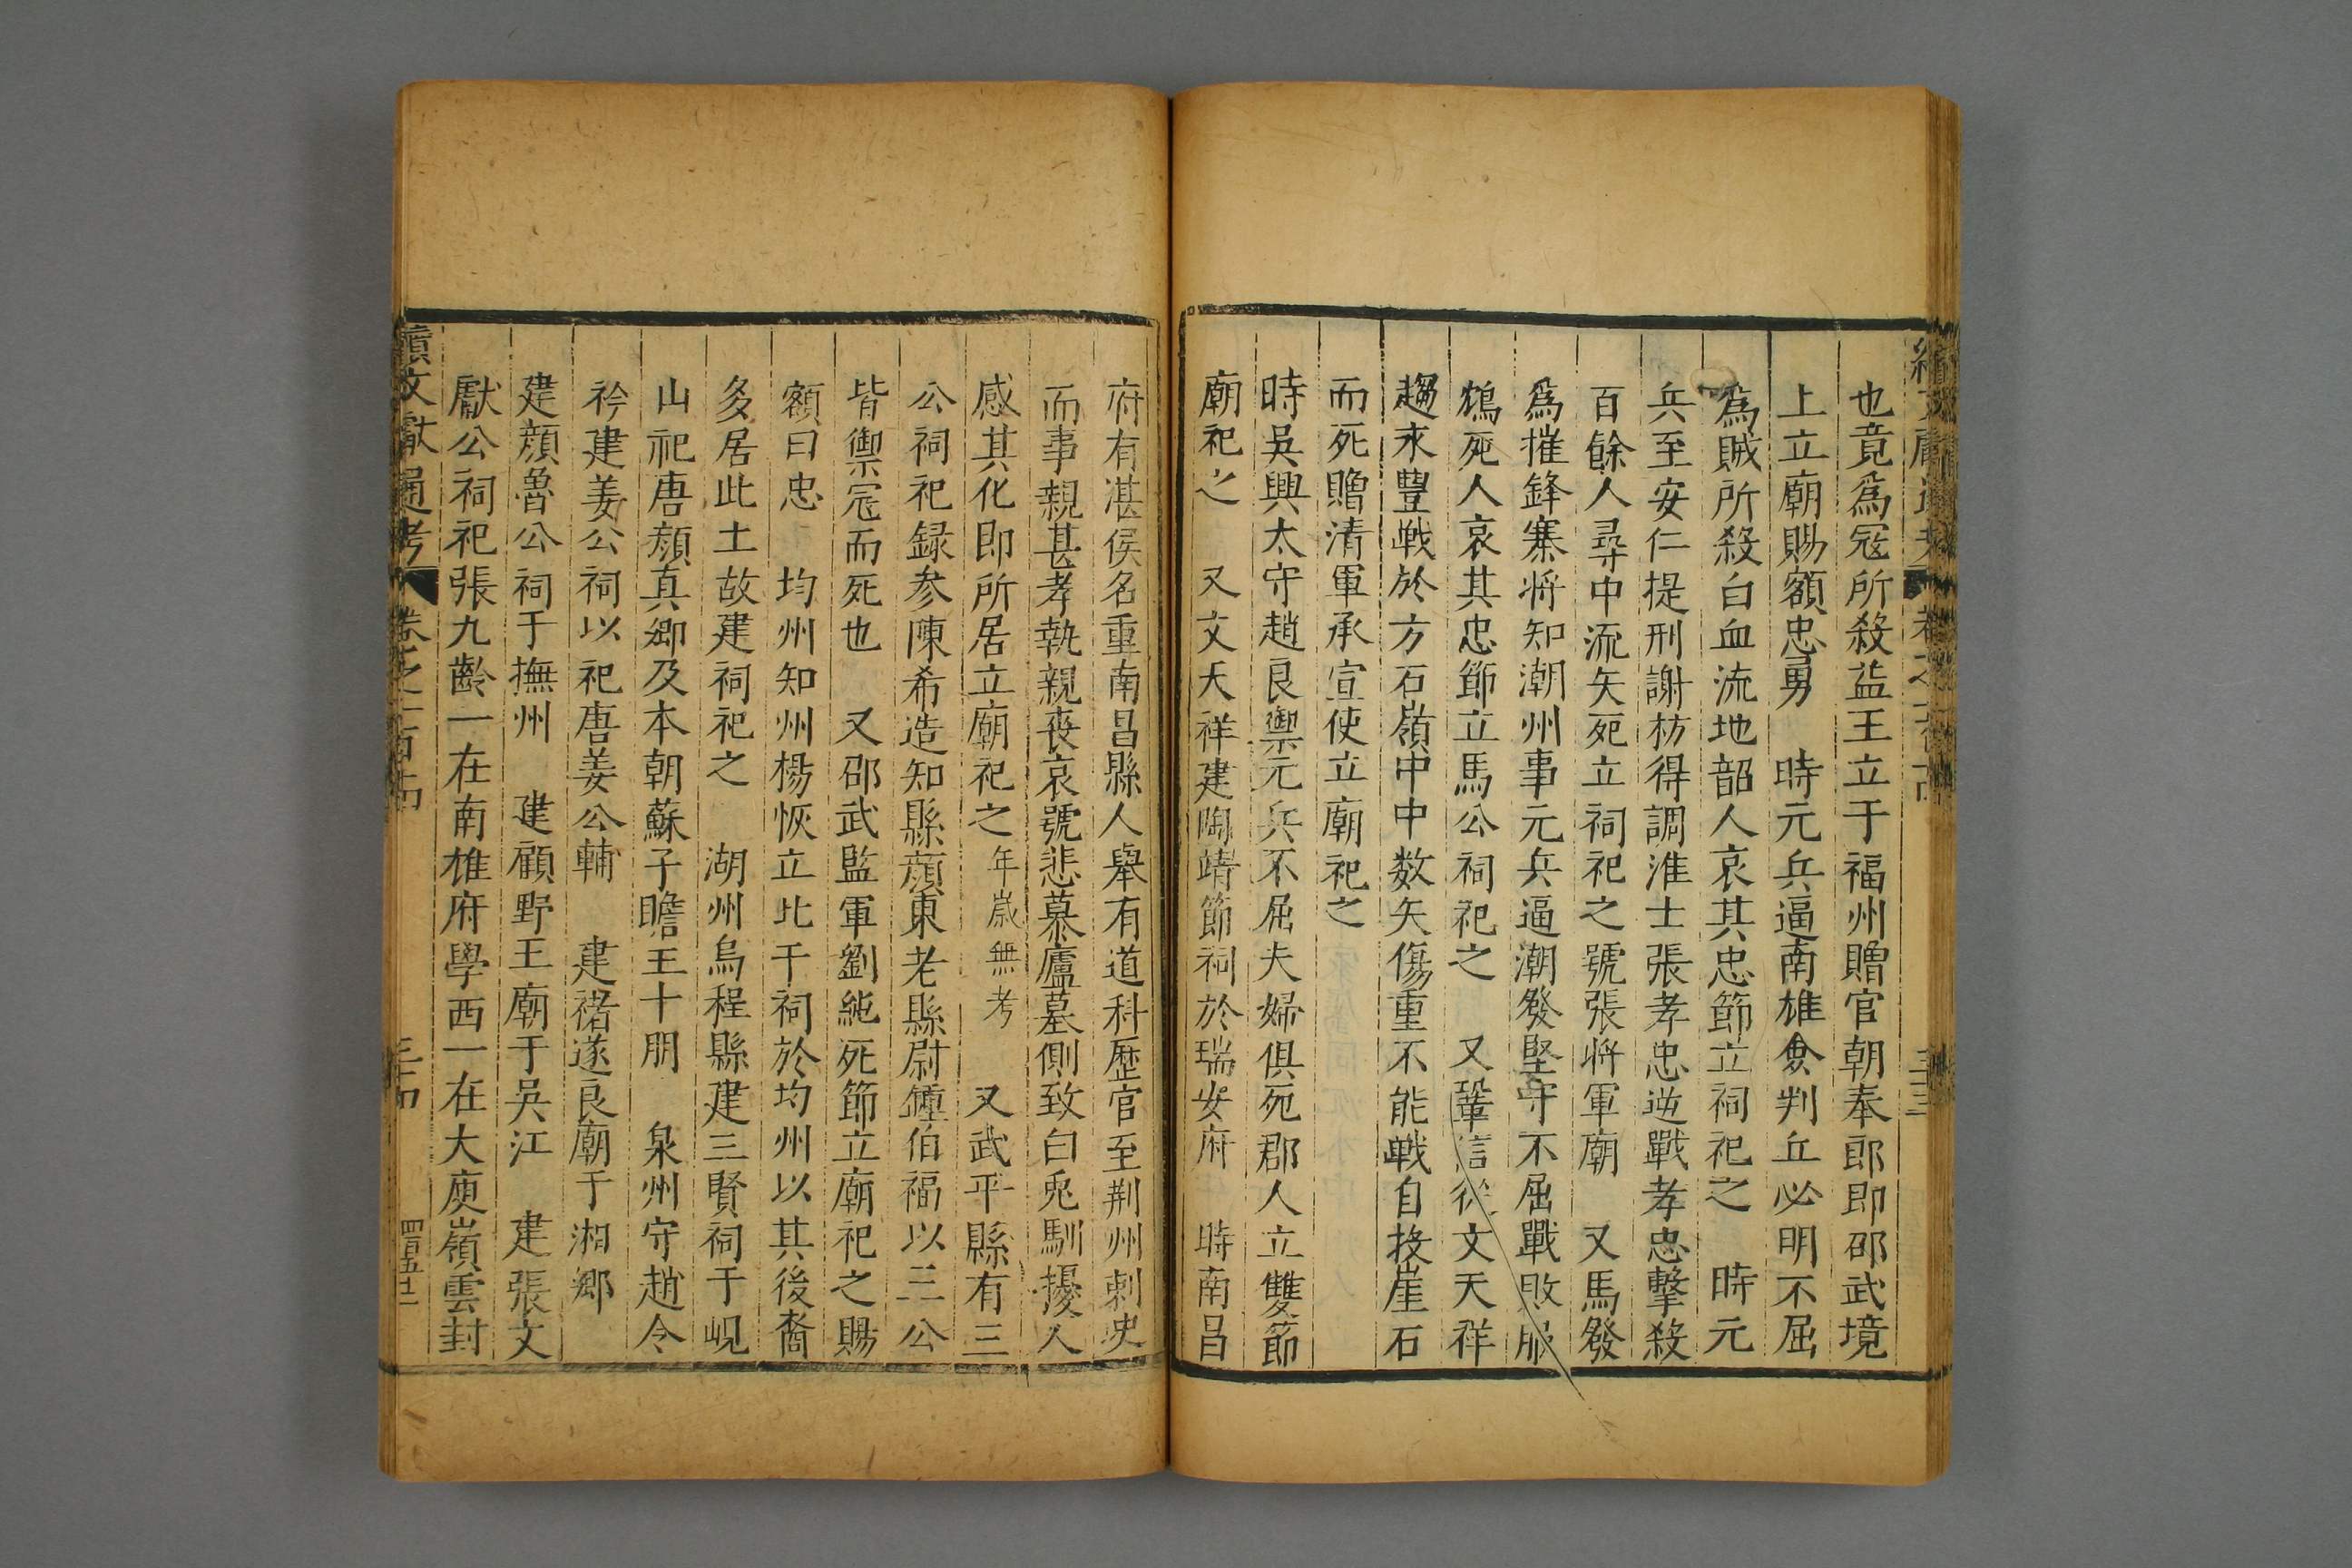 也竟爲冦所殺益王立于福州贈官朝奉郎即邵武境
上立廟賜額忠勇　時元兵逼南雄僉判丘必明不屈
爲賊所殺白血流地韶人哀其忠節立祠祀之　時元
兵至安仁提刑謝枋得調淮士張孝忠逆戰孝忠擊殺
百餘人尋中流矢死立祠祀之號張將軍廟　又馬發
爲摧鋒寨將知潮州事元兵逼潮發堅守不屈戰敗服
鴆死人哀其忠節立馬公祠祀之　又鞏信從文天祥
趨永豐戰於方石嶺中中数矢傷重不能戰自投崖石
而死贈清軍承宣使立廟祀之
時吳興太守趙良禦元兵不屈夫婦俱死郡人立雙節
廟祀之　又文天祥建陶靖節祠於瑞安府　時南昌
府有湛侯名重南昌縣人舉有道科歷官至荆州刺史
而事親甚孝執親喪哀號悲慕廬墓側致白兎馴擾人
感其化即所居立廟祀之年歲無考　又武平縣有三
公祠祀録参陳希造知縣顔東老縣尉鍾伯福以三公
皆禦冦而死也　又邵武監軍劉純死節立廟祀之賜
額曰忠　均州知州楊恢立比干祠於均州以其後裔
多居此土故建祠祀之　湖州烏程縣建三賢祠于峴
山祀唐顔真卿及本朝蘇子瞻王十朋　泉州守趙令
衿建姜公祠以祀唐姜公輔　建褚遂良廟于湘鄉
建顔魯公祠于撫州　建顧野王廟于吳江　建張文
獻公祠祀張九齡一在南雄府學西一在大庾嶺雲封
續文獻通考　卷之一百十四　三十四